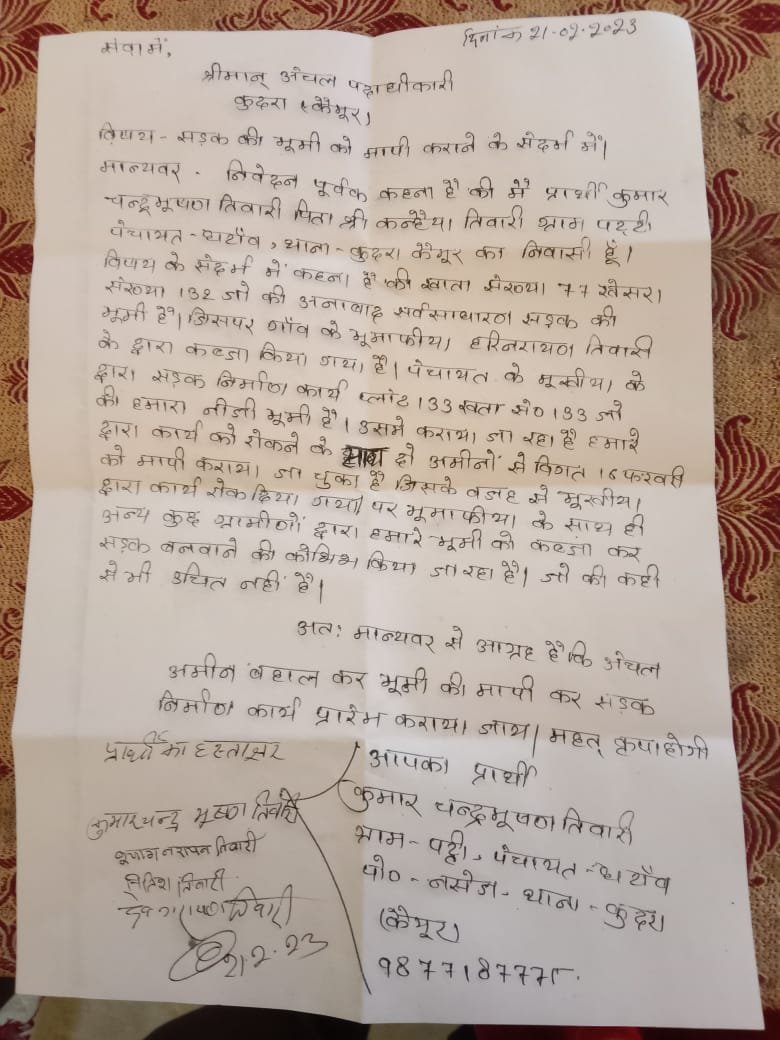 सेवा में,
दिनांक 21.02.2023
श्रीमान् अंचल पदाधीकारी
कुदरा (कैमूर)
विषय - सड़क की भूमी को मापी कराने के संदर्भ में।
मान्यवर - निवेदन पूर्वक कहना है की मैं प्रार्थी कुमार
चन्द्रभूषण तिवारी पिता श्री कन्हैया तिवारी ग्राम पट्टी
पंचायत - घटाँव, थाना - कुदरा कैमूर का निवासी हूँ।
विषय के संदर्भ में कहना है की खाता संख्या 77 खेसरा
संख्या 132 जो की अनावाद सर्वसाधारण सड़क की
भूमी है। जिसपर गाँव के भूमाफीया हरिनरायण तिवारी
के द्वारा कब्जा किया गया है। पंचायत के मूखीया के
द्वारा सड़क निर्माण कार्य प्लांट 133 खता सं० 133 जो
की हमारा नीजी भूमी है। उसमे कराया जा रहा है हमारे
द्वारा कार्य को रोकने के दो अमीनों से विगत 16 फरवरी
को मापी कराया जा चुका है जिसके वजह से मूखीया
द्वारा कार्य रोक दिया गया। पर भूमाफीया के साथ ही
अन्य कुछ ग्रामीणों द्वारा हमारे भूमी को कब्जा कर
सड़क बनवाने की कोशिश किया जा रहा है। जो की कही
से भी उचित नहीं है।
अतः मान्यवर से आग्रह है कि अंचल
अमीन बहाल कर भूमी की मापी कर सड़क
निर्माण कार्य प्रारंभ कराया जाय। महत् कृपा होगी
प्रार्थी का हस्ताक्षर
कुमार चन्द्र भूषण तिवारी
नरायन तिवारी
तिवारी
तिवारी
21.2.23
आपका प्रार्थी
कुमार चन्द्रभूषण तिवारी
ग्राम - पट्टी, पंचायत - घटाँव
पो० - नसेज - थाना - कुदरा
(कैमूर)